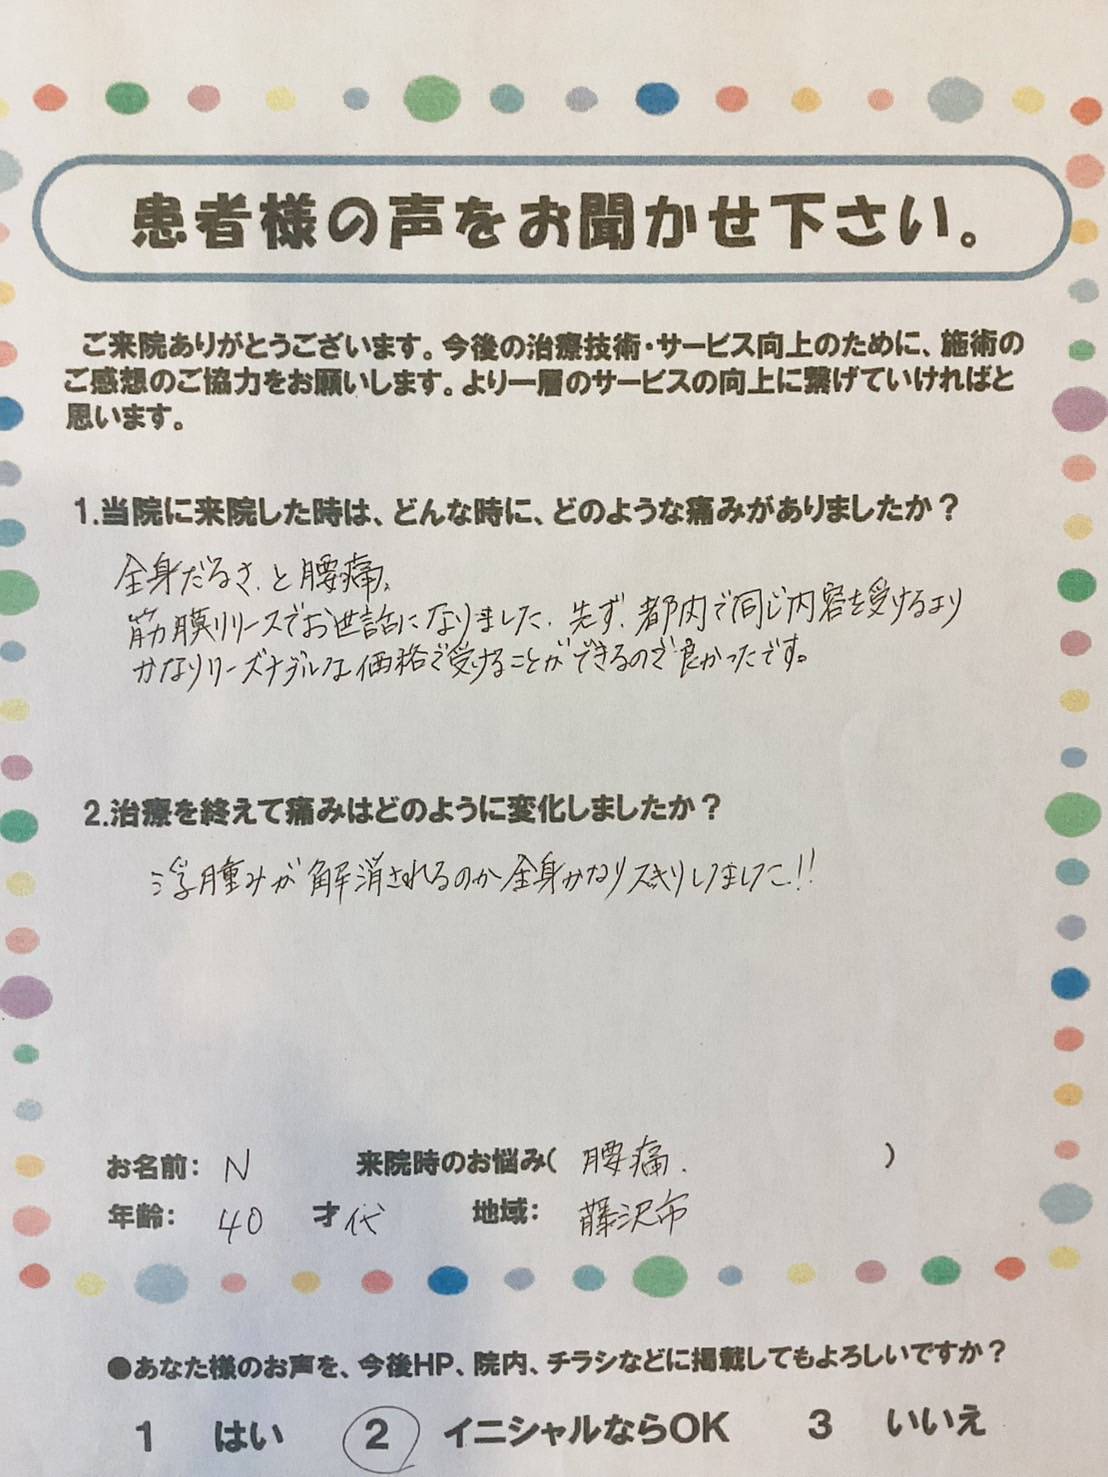 患者様の声をお聞かせ下さい。
ご来院ありがとうございます。今後の治療技術・サービス向上のために、施術の
ご感想のご協力をお願いします。より一層のサービスの向上に繋げていければと
思います。
1.当院に来院した時は、どんな時に、どのような痛みがありましたか？
全身だるさ、と腰痛。
筋膜リリースでお世話になりました、先ず、都内で同じ内容を受けるより
かなりリーズナブルな価格で受けることができるので良かったです。
2.治療を終えて痛みはどのように変化しましたか？
浮腫みが解消されるのか全身かなりスキリしました!!
お名前： N 来院時のお悩み( 腰痛. )
年齢： 40 才代 地域： 藤沢市
●あなた様のお声を、今後HP、院内、チラシなどに掲載してもよろしいですか？
1 はい 2 イニシャルならOK 3 いいえ